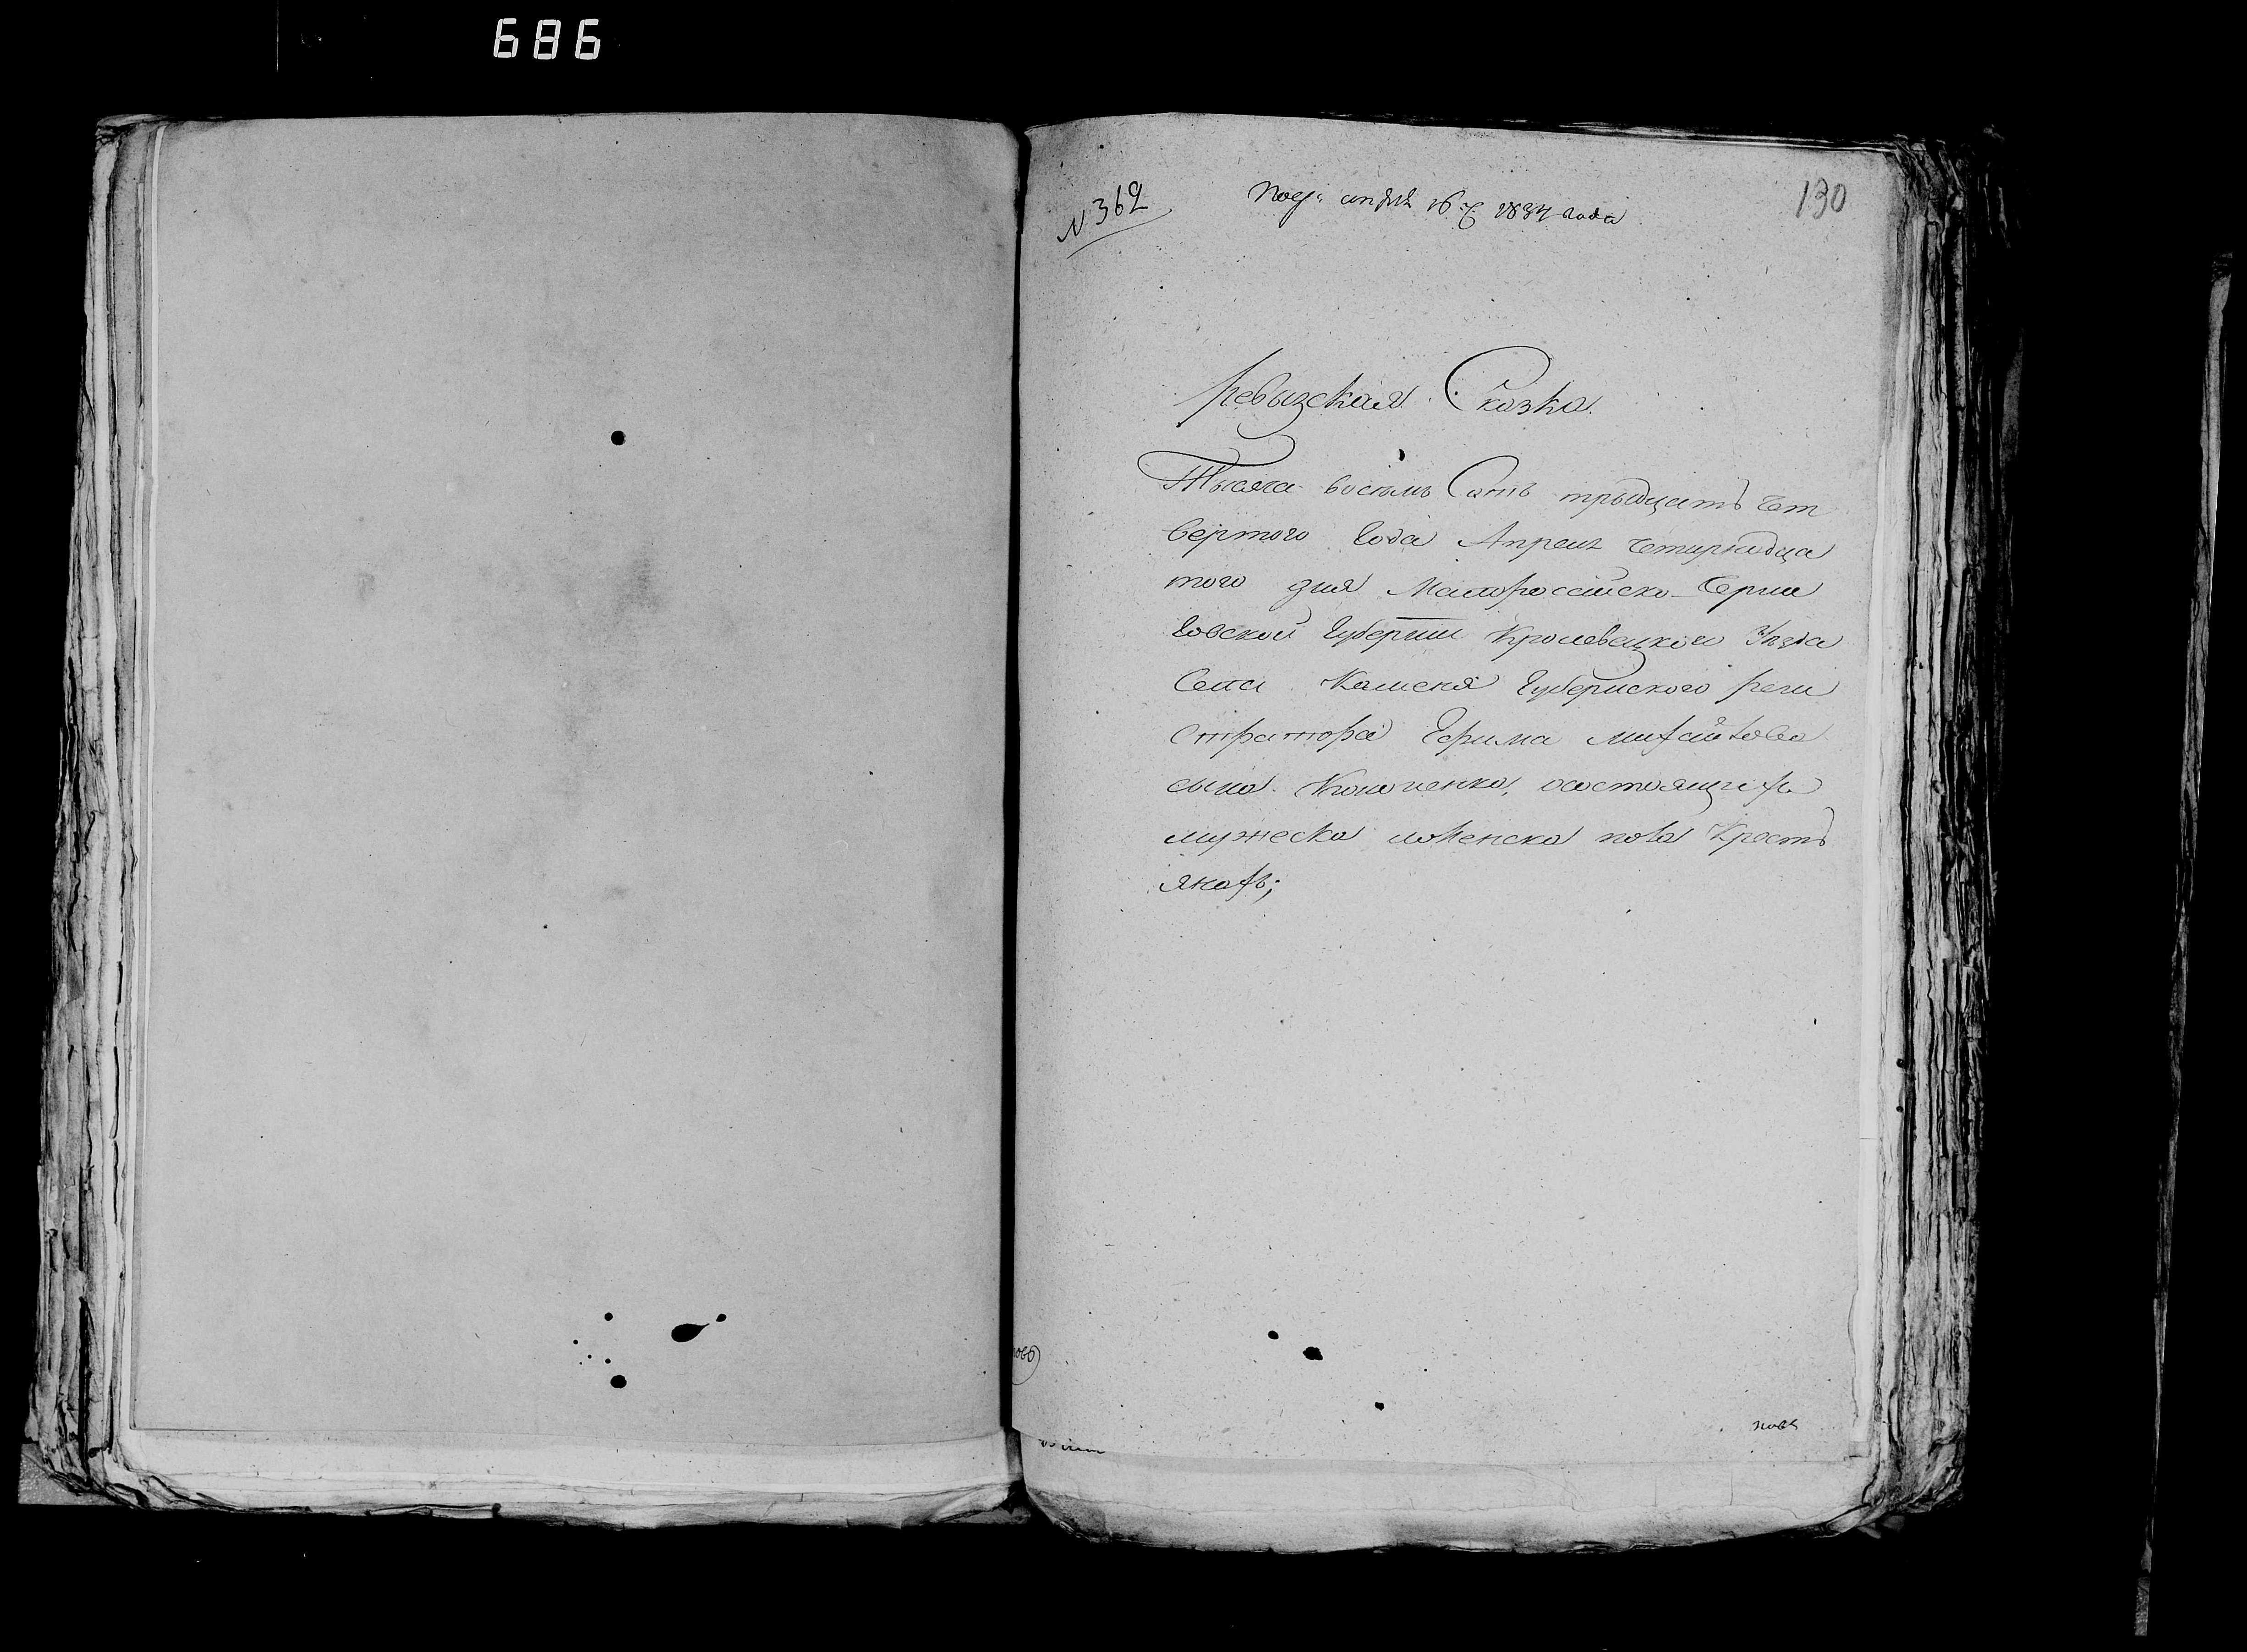 686
N 362
Пол: апреля 16 г. 1834 года
130
Ревызская Сказка.
Тысяча восемь Сотъ трыдцать чет
вертого Года Апреля четирнадца
того дня Малоросслиско Черни
Говской Губернии Кролевецкого Уезда
Села Каменя Губернского Реги
стратора Ефима Михайлова
сына Кононенка, осостоящихъ
мужеска иоженска пола Кресть
янахъ;